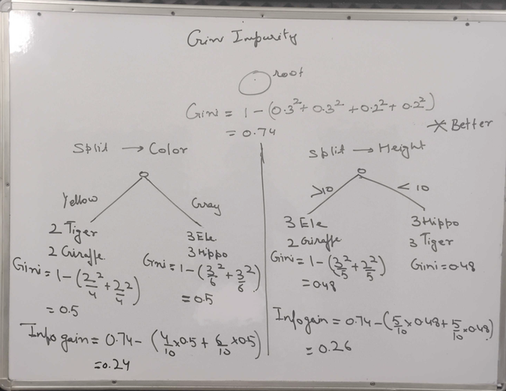 Gini Impurity
root
Gini = 1 - (0.3² + 0.3² + 0.2² + 0.2²)
= 0.74
* Better
Split → Color
Yellow
Gray
2 Tiger
2 Giraffe
3 Ele
3 Hippo
Gini = 1 - (2/4² + 2/4²)
= 0.5
Gini = 1 - (3/6² + 3/6²)
= 0.5
Info gain = 0.74 - (4/10 × 0.5 + 6/10 × 0.5)
= 0.24
Split → Height
>10
< 10
3 Ele
2 Giraffe
3 Hippo
3 Tiger
Gini = 1 - (3/5² + 2/5²)
= 0.48
Gini = 0.48
Info gain = 0.74 - (5/10 × 0.48 + 5/10 × 0.48)
= 0.26